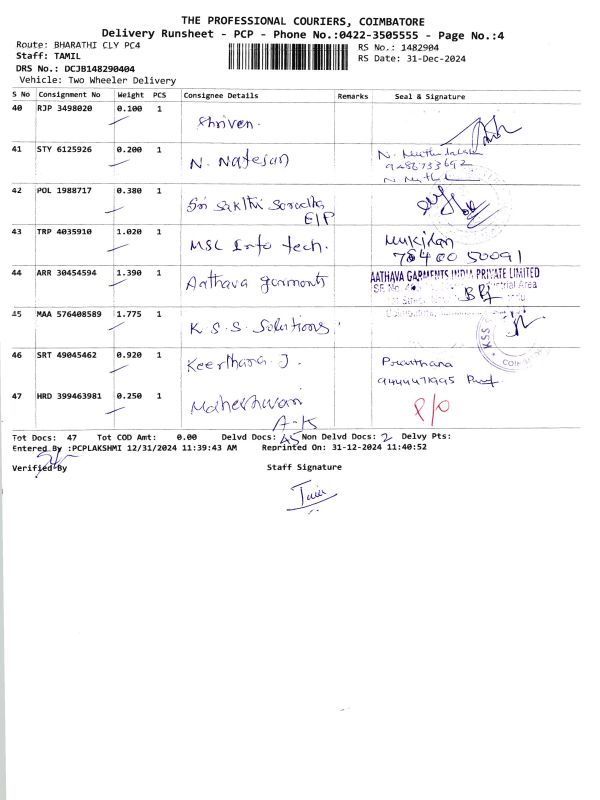 THE PROFESSIONAL COURIERS, COIMBATORE
Delivery Runsheet - PCP - Phone No.:0422-3505555 - Page No.:4
Route: BHARATHI CLY PC4 RS No.: 1482904
Staff: TAMIL RS Date: 31-Dec-2024
DRS No.: DCJB148290404
Vehicle: Two Wheeler Delivery
S No Consignment No Weight PCS Consignee Details Remarks Seal & Signature
40 RJP 3498020 0.100 1
Shriven.
41 STY 6125926 0.200 1
N. Natesan
9486733692
42 POL 1988717 0.380 1
Sri Sakthi Saradha
EIP
43 TRP 4035910 1.020 1
MSL Info tech. Mukilan
78400 50091
44 ARR 30454594 1.390 1
Aathava garments AATHAVA GARMENTS INDIA PRIVATE LIMITED
SF. No. Industrial Area
45 MAA 576408589 1.775 1
K.S.S. Solutions. KSS
46 SRT 49045462 0.920 1
Keerthana. J. Prarthana
9444471995
47 HRD 399463981 0.250 1
Maheshwari P/O
A-K
Tot Docs: 47 Tot COD Amt: 0.00 Delvd Docs: 45 Non Delvd Docs: 2 Delvy Pts:
Entered By :PCPLAKSHMI 12/31/2024 11:39:43 AM Reprinted On: 31-12-2024 11:40:52
Verified By Staff Signature